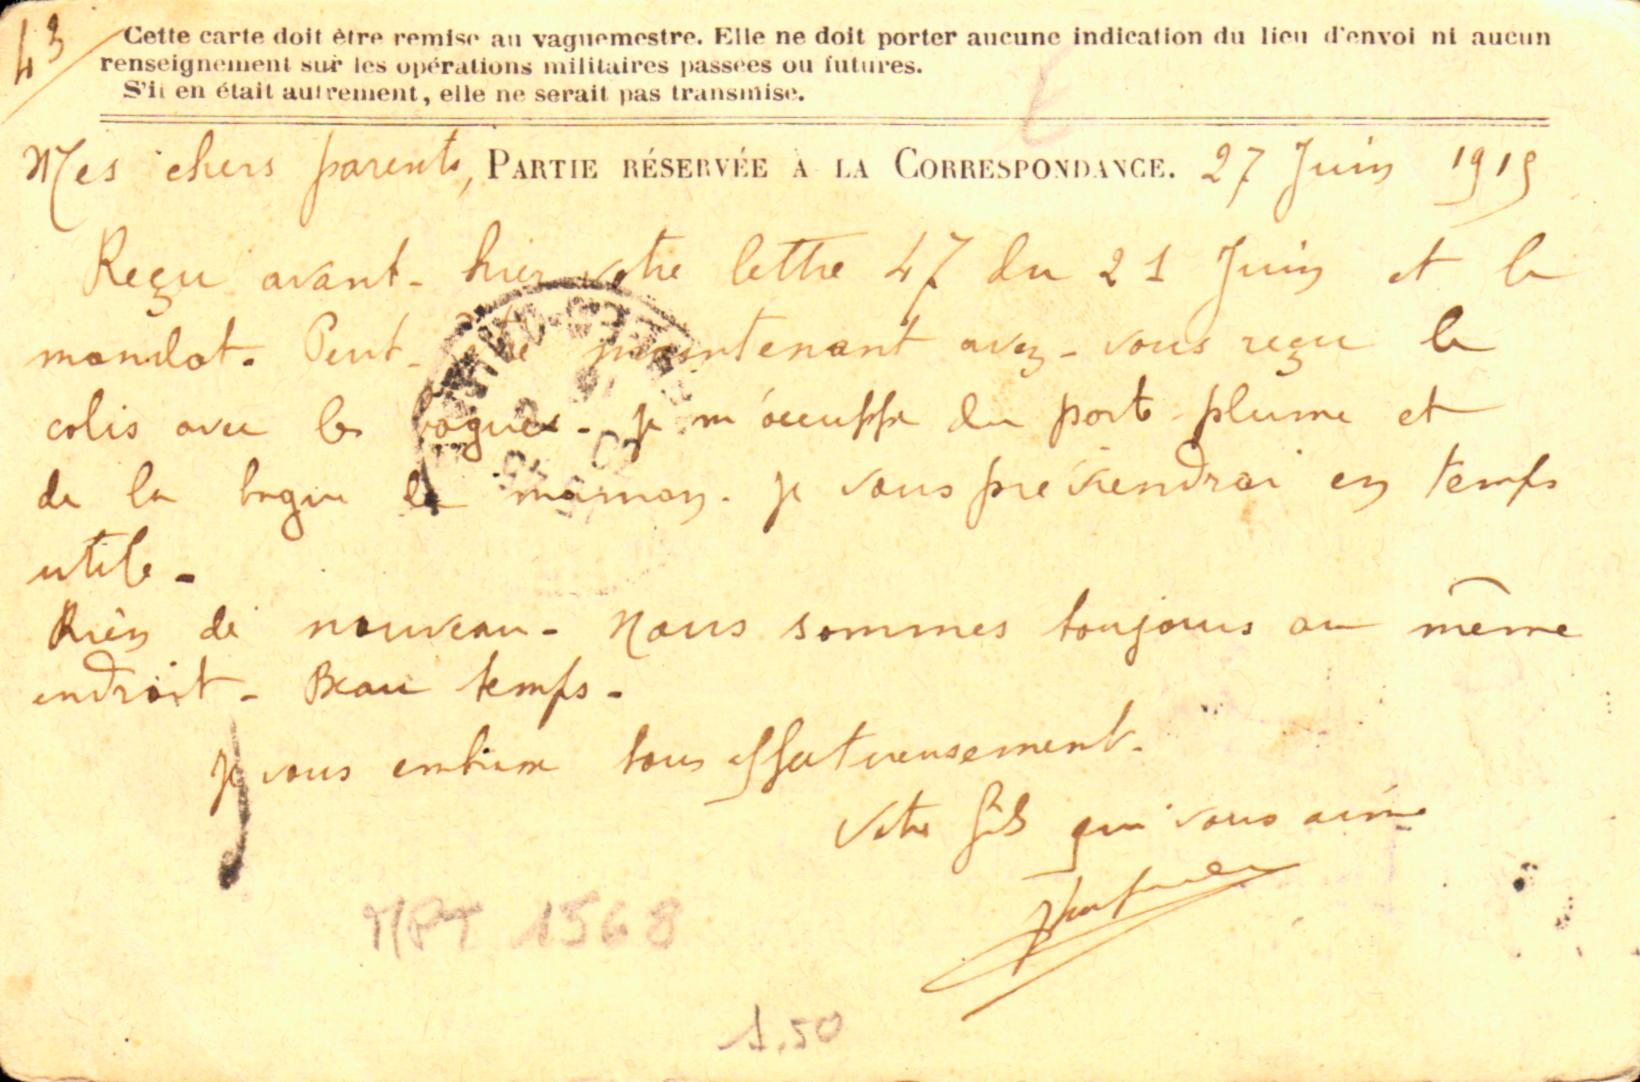 43
Cette carte doit être remise au vaguemestre. Elle ne doit porter aucune indication du lieu d'envoi ni aucun
renseignement sur les opérations militaires passées ou futures.
S'il en était autrement, elle ne serait pas transmise.
Mes chers parents, PARTIE RÉSERVÉE À LA CORRESPONDANCE. 27 Juin 1915
Reçu avant-hier votre lettre 47 du 21 Juin et le
mandat. Peut-être maintenant avez-vous reçu le
colis avec les bagues. Je m'occuppe du porte plume et
de la bague de maman. Je vous préviendrai en temps
utile.
Rien de nouveau. Nous sommes toujours au même
endroit. Beau temps.
Je vous embrasse tous affectueusement.
Votre fils qui vous aime
MPT 1568
1.50